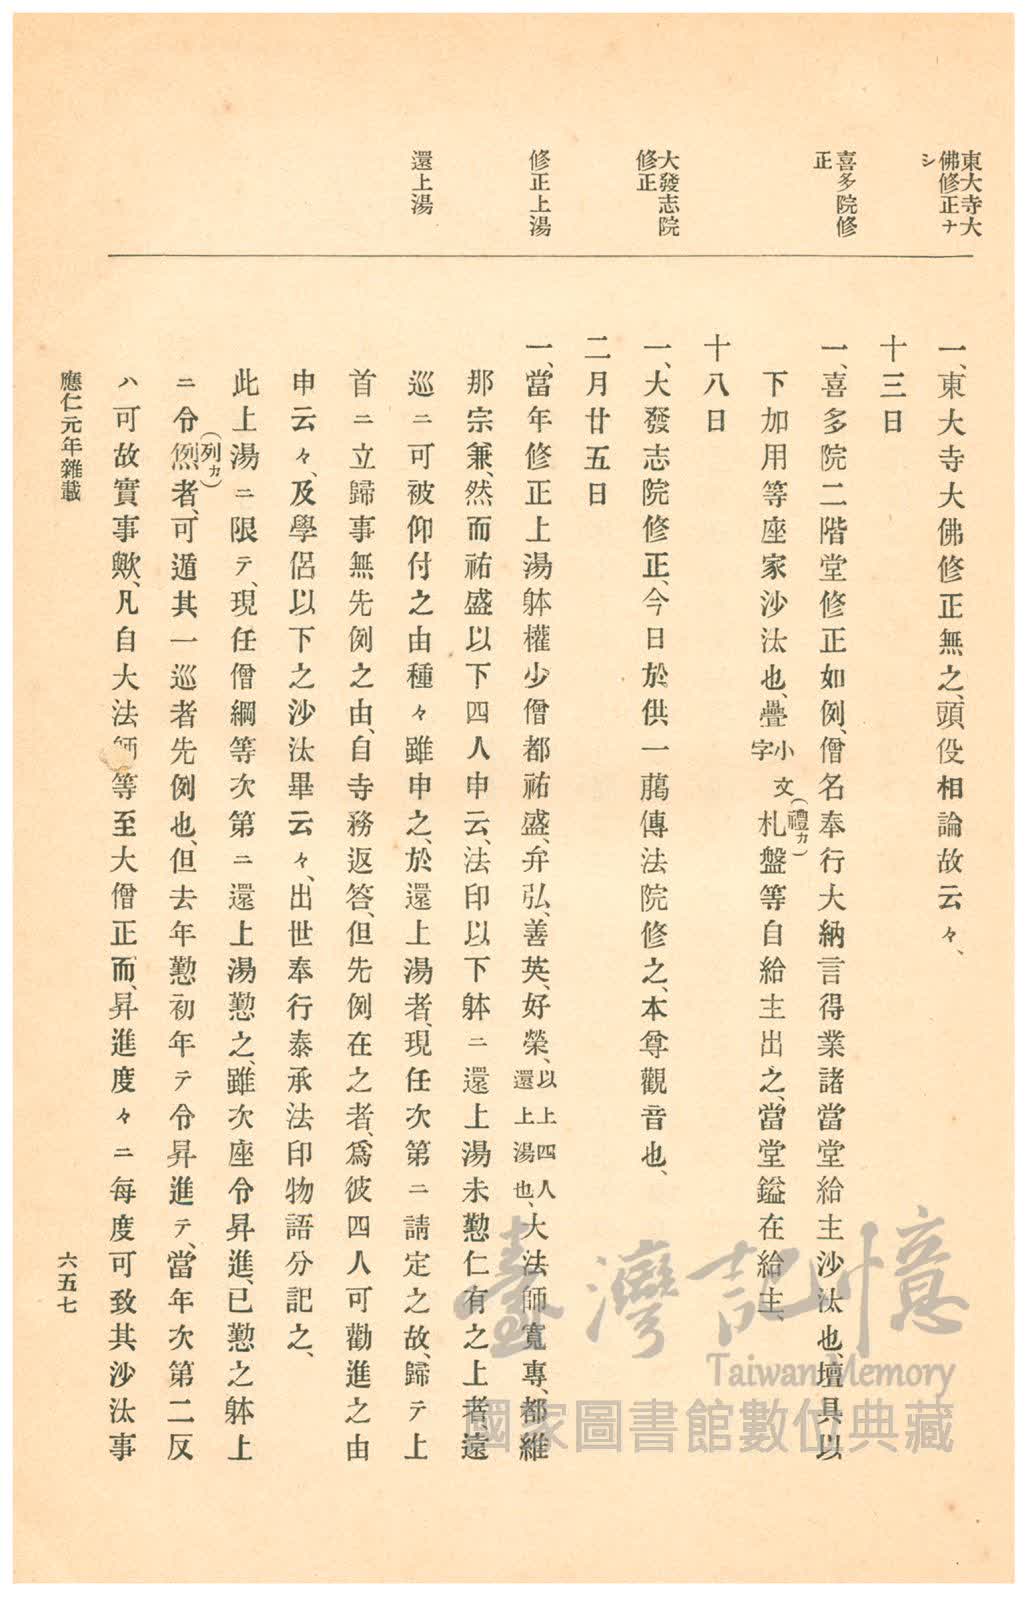 東大寺大
佛修正ナ
シ
喜多院修
正
大發志院
修正
修正上湯
還上湯
一、東大寺大佛修正無之、頭役相論故云々、
十三日
一、喜多院二階堂修正如例、僧名奉行大納言得業諸當堂給主沙汰也、壇具以
下加用等座家沙汰也、疊小文字札(禮カ)盤等自給主出之、當堂鎰在給主、
十八日
一、大發志院修正、今日於供一﨟傳法院修之、本尊觀音也、
二月廿五日
一、當年修正上湯躰權少僧都祐盛、弁弘、善英、好榮、以上四人還上湯也、大法師寬專、都維
那宗兼、然而祐盛以下四人申云、法印以下躰ニ還上湯未懃仁有之上者、遠
巡ニ可被仰付之由種々雖申之、於還上湯者、現任次第ニ請定之故、歸テ上
首ニ立歸事無先例之由、自寺務返答、但先例在之者、爲彼四人可勸進之由
申云々、及學侶以下之沙汰畢云々、出世奉行泰承法印物語分記之、
此上湯ニ限テ、現任僧綱等次第ニ還上湯懃之、雖次座令昇進、已懃之躰上
ニ令烈(列カ)者、可遁其一巡者先例也、但去年懃初年テ令昇進テ、當年次第二反
ハ可故實事歟、凡自大法師等至大僧正、而昇進度々ニ每度可致其沙汰事
應仁元年雜載
六五七
臺灣記憶
Taiwan Memory
國家圖書館數位典藏